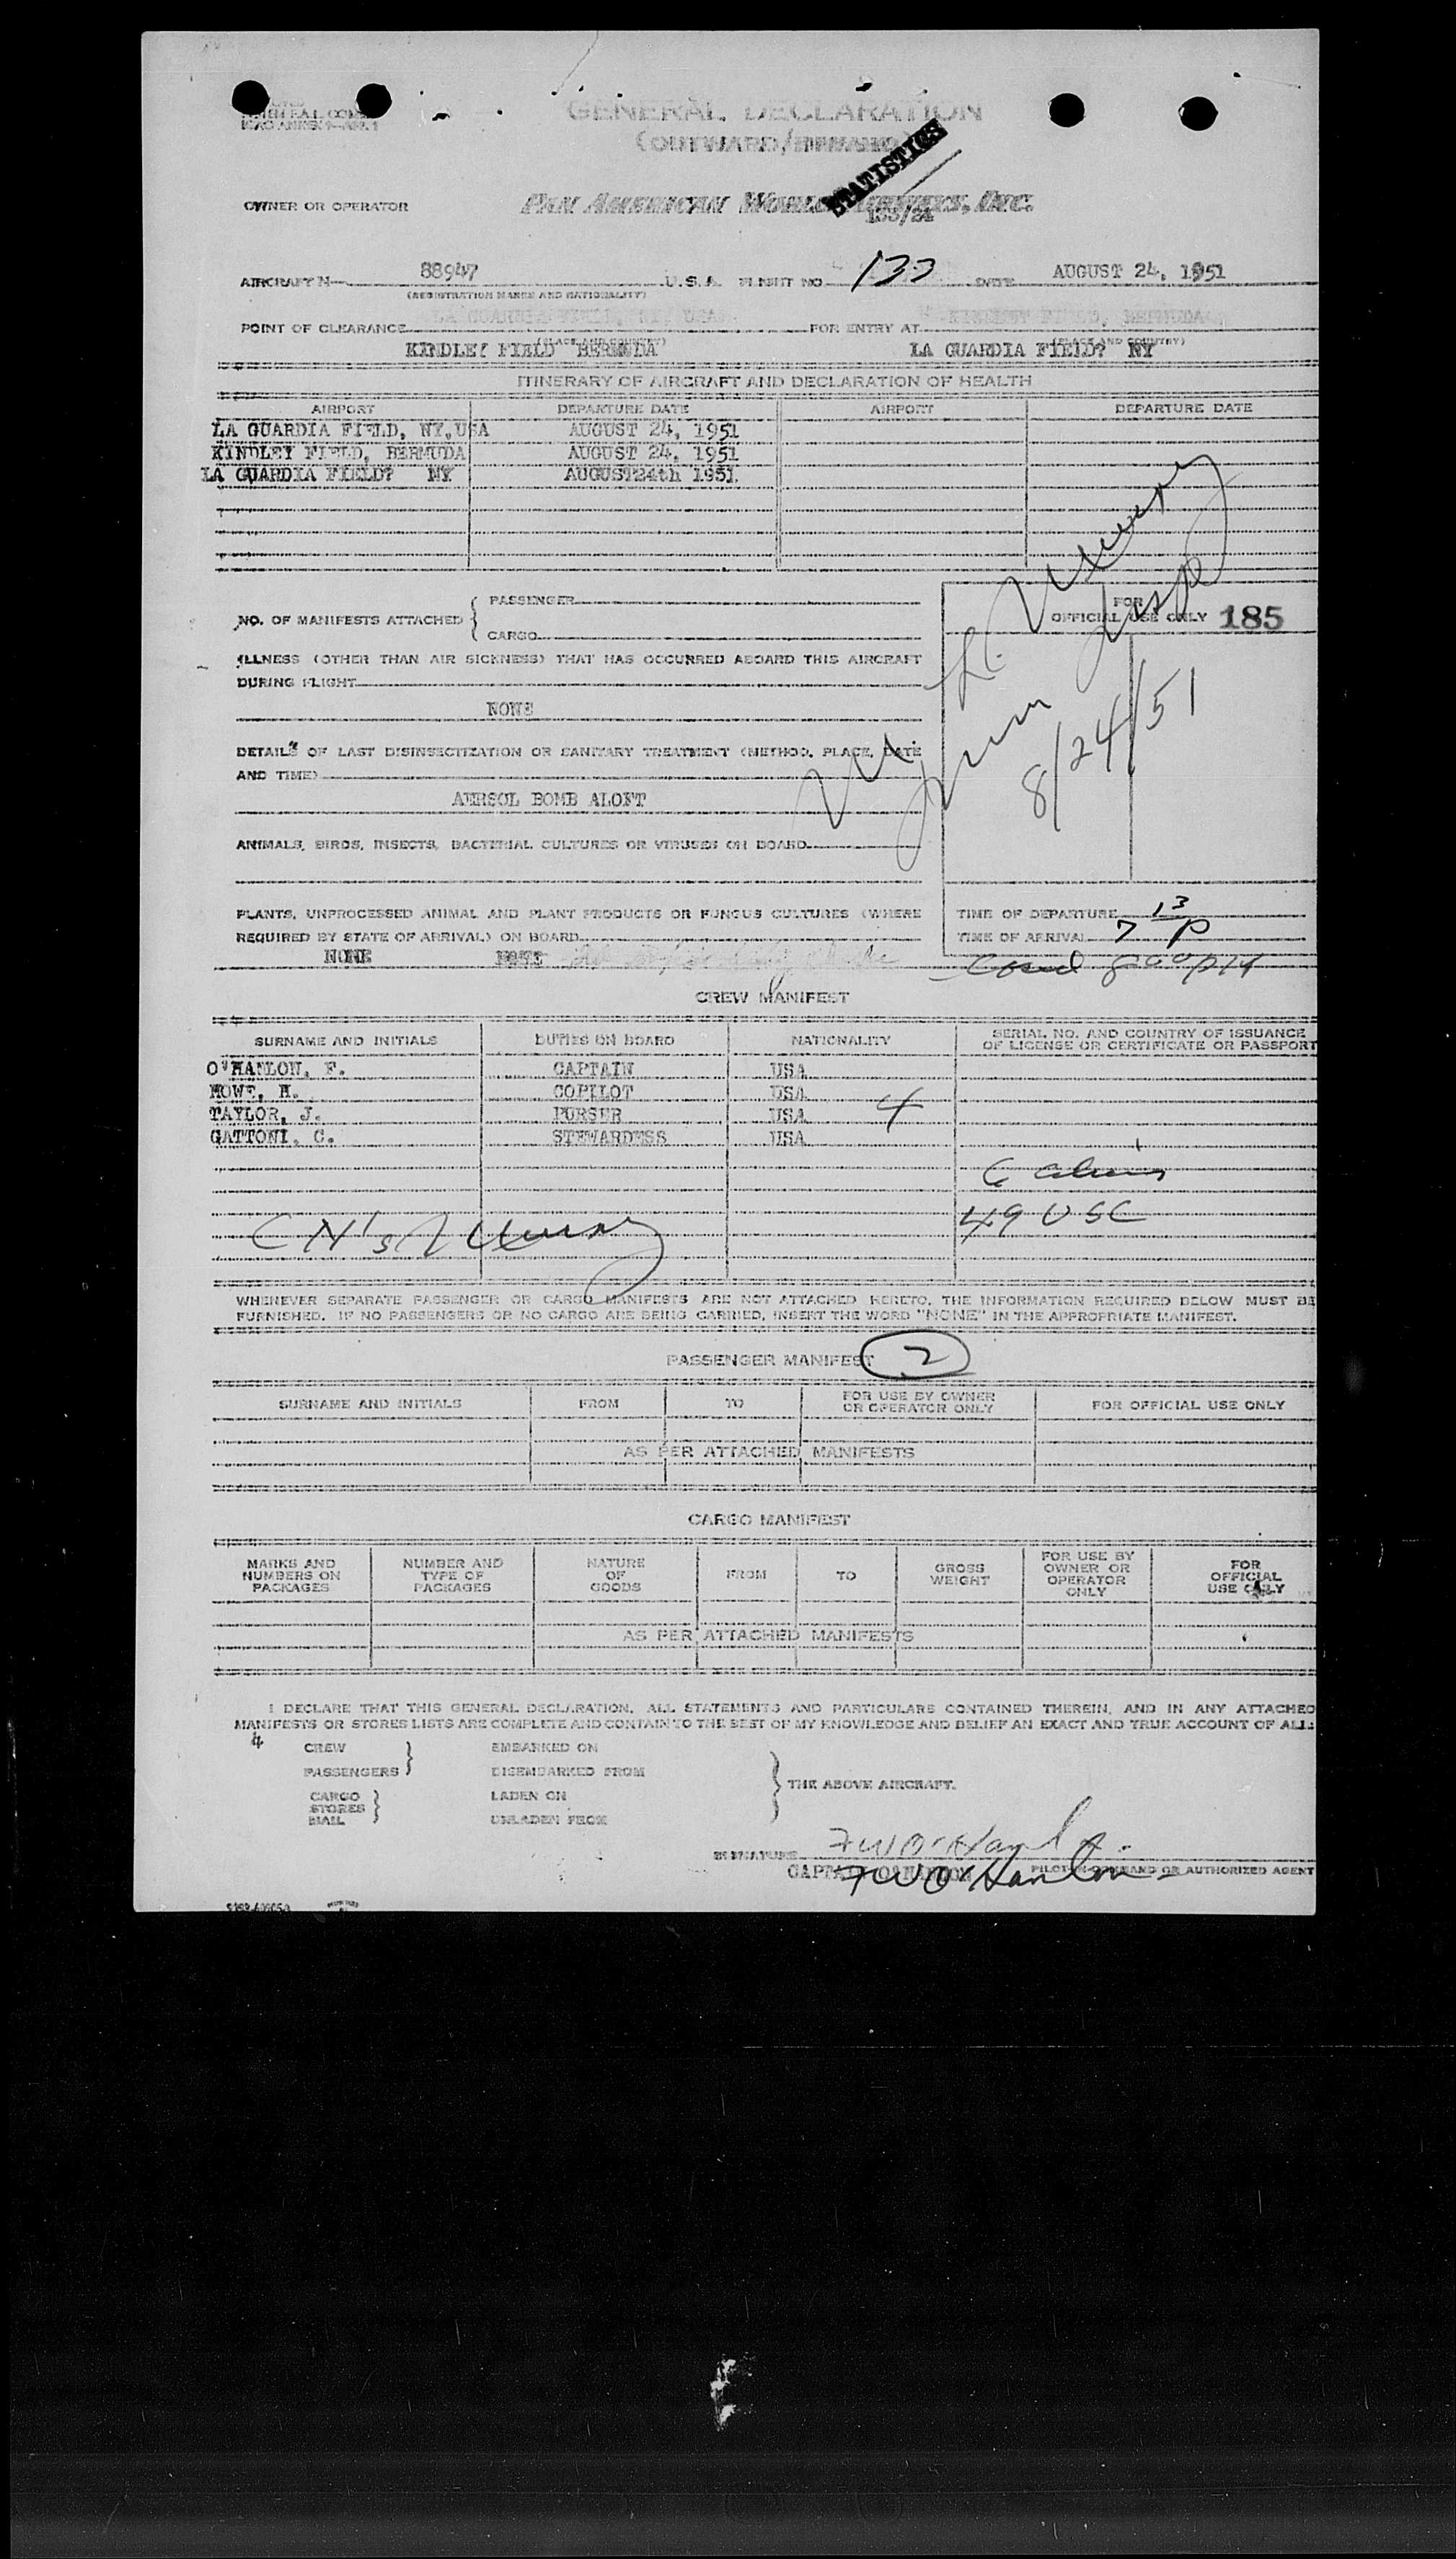 GENERAL DECLARATION
(OUTWARD/INWARD)
STATISTICS
OWNER OR OPERATOR PAN AMERICAN WORLD AIRWAYS, INC.
AIRCRAFT N- 88947 U.S.A. FLIGHT NO. 133 DATE AUGUST 24, 1951
(REGISTRATION MARKS AND NATIONALITY)
POINT OF CLEARANCE LA GUARDIA FIELD, NY, USA FOR ENTRY AT KINDLEY FIELD, BERMUDA
(PLACE AND COUNTRY) (PLACE AND COUNTRY)
KINDLEY FIELD BERMUDA LA GUARDIA FIELD? NY
ITINERARY OF AIRCRAFT AND DECLARATION OF HEALTH
AIRPORT DEPARTURE DATE AIRPORT DEPARTURE DATE
LA GUARDIA FIELD, NY, USA AUGUST 24, 1951
KINDLEY FIELD, BERMUDA AUGUST 24, 1951
LA GUARDIA FIELD? NY AUGUST24th 1951
NO. OF MANIFESTS ATTACHED { PASSENGER
CARGO
FOR
OFFICIAL USE ONLY 185
ILLNESS (OTHER THAN AIR SICKNESS) THAT HAS OCCURRED ABOARD THIS AIRCRAFT
DURING FLIGHT
NONE
8/24/51
DETAILS OF LAST DISINSECTIZATION OR SANITARY TREATMENT (METHOD, PLACE, DATE
AND TIME)
AERSOL BOMB ALOFT
ANIMALS, BIRDS, INSECTS, BACTERIAL CULTURES OR VIRUSES ON BOARD
PLANTS, UNPROCESSED ANIMAL AND PLANT PRODUCTS OR FUNGUS CULTURES (WHERE
REQUIRED BY STATE OF ARRIVAL) ON BOARD
NONE NONE
TIME OF DEPARTURE
TIME OF ARRIVAL 7 13 P
CREW MANIFEST
SURNAME AND INITIALS DUTIES ON BOARD NATIONALITY SERIAL NO. AND COUNTRY OF ISSUANCE
OF LICENSE OR CERTIFICATE OR PASSPORT
O'HANLON, F. CAPTAIN USA
HOWE, H. COPILOT USA
TAYLOR, J. PURSER USA 4
GATTONI, C. STEWARDESS USA
6 aliens
49 USC
WHENEVER SEPARATE PASSENGER OR CARGO MANIFESTS ARE NOT ATTACHED HERETO, THE INFORMATION REQUIRED BELOW MUST BE
FURNISHED. IF NO PASSENGERS OR NO CARGO ARE BEING CARRIED, INSERT THE WORD "NONE" IN THE APPROPRIATE MANIFEST.
PASSENGER MANIFEST 2
SURNAME AND INITIALS FROM TO FOR USE BY OWNER
OR OPERATOR ONLY FOR OFFICIAL USE ONLY
AS PER ATTACHED MANIFESTS
CARGO MANIFEST
MARKS AND
NUMBERS ON
PACKAGES NUMBER AND
TYPE OF
PACKAGES NATURE
OF
GOODS FROM TO GROSS
WEIGHT FOR USE BY
OWNER OR
OPERATOR
ONLY FOR
OFFICIAL
USE ONLY
AS PER ATTACHED MANIFESTS
I DECLARE THAT THIS GENERAL DECLARATION, ALL STATEMENTS AND PARTICULARS CONTAINED THEREIN, AND IN ANY ATTACHED
MANIFESTS OR STORES LISTS ARE COMPLETE AND CONTAIN TO THE BEST OF MY KNOWLEDGE AND BELIEF AN EXACT AND TRUE ACCOUNT OF ALL:
4 CREW EMBARKED ON
PASSENGERS DISEMBARKED FROM
CARGO LADEN ON
STORES
MAIL UNLADEN FROM
THE ABOVE AIRCRAFT.
SIGNATURE FWO'Hanlon
CAPTAIN O'HANLON FWO'Hanlon PILOT-IN-COMMAND OR AUTHORIZED AGENT